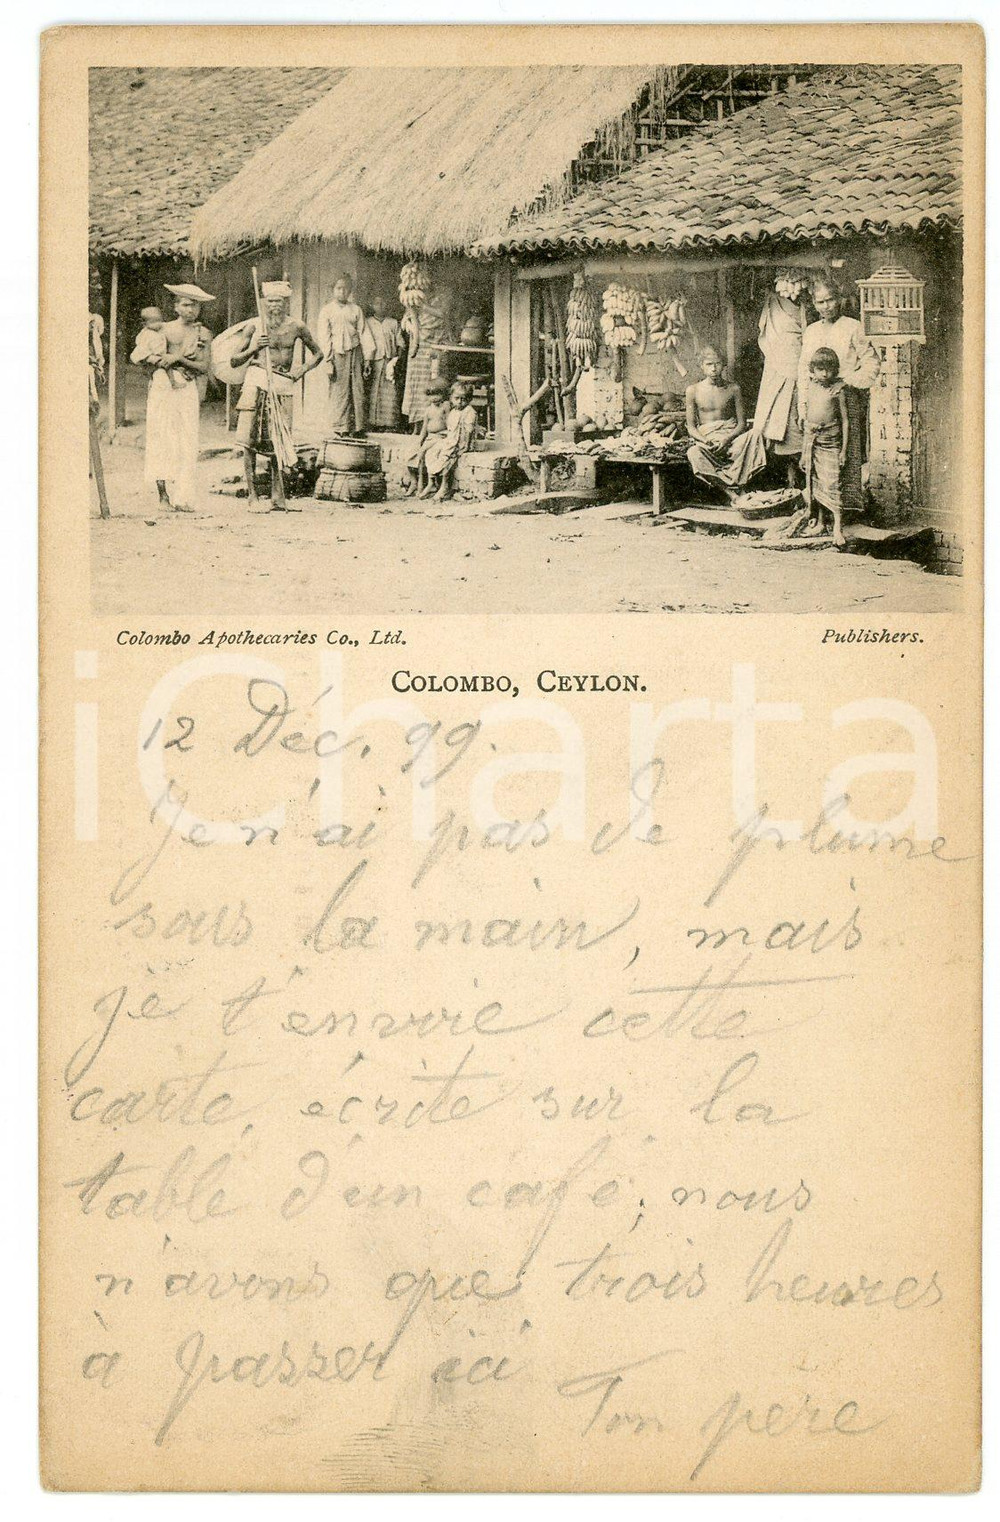 Colombo Apothecaries Co., Ltd. Publishers.
COLOMBO, CEYLON.
iCharta
12 Déc. 99.
Je n'ai pas de plume
sous la main, mais
je t'envoie cette
carte, écrite sur la
table d'un café; nous
n'avons que trois heures
à passer ici
Ton père